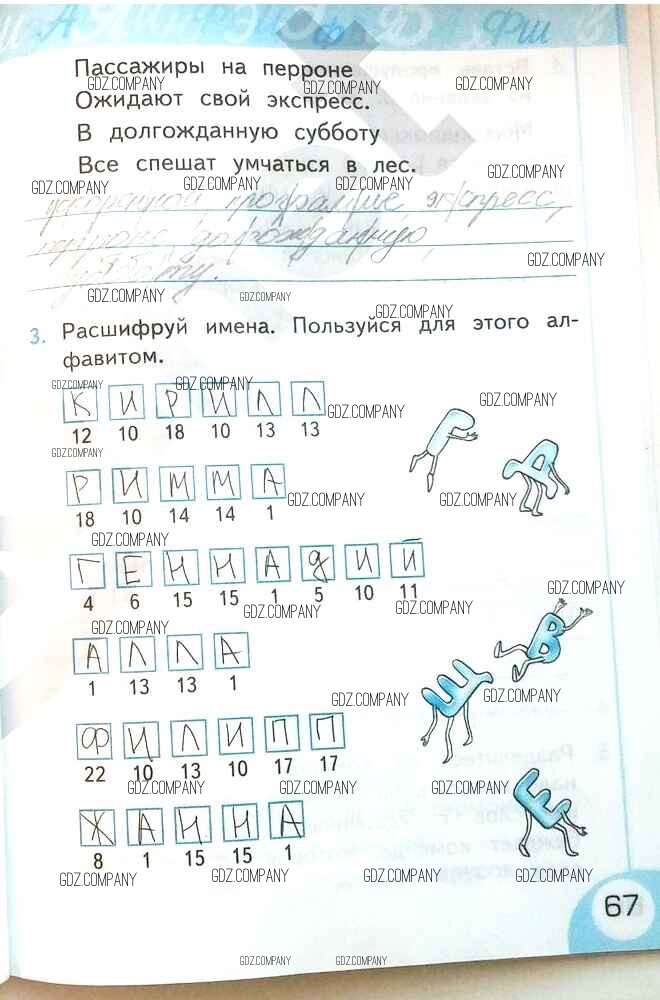 Пассажиры на перроне
Ожидают свой экспресс.
В долгожданную субботу
Все спешат умчаться в лес.
программе, экспресс,
перроне, долгожданную,
субботу.
3. Расшифруй имена. Пользуйся для этого ал-
фавитом.
К И Р И Л Л
12 10 18 10 13 13
Р И М М А
18 10 14 14 1
Г Е Н Н А Д И Й
4 6 15 15 1 5 10 11
А Л Л А
1 13 13 1
Ф И Л И П П
22 10 13 10 17 17
Ж А Н Н А
8 1 15 15 1
67
GDZ.COMPANY